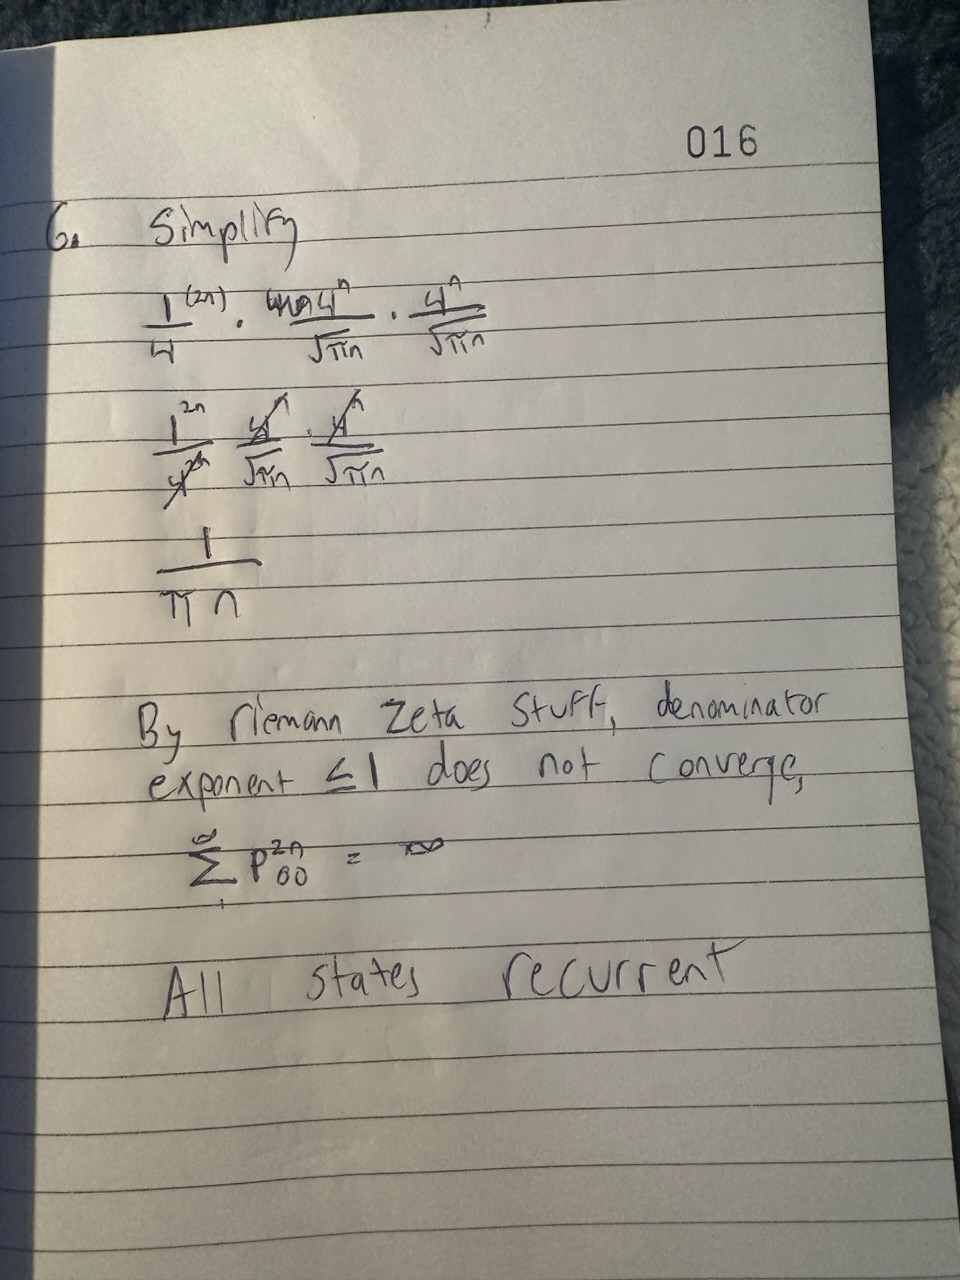 016
6. Simplify
1/4^(2n) · 4^n/√πn · 4^n/√πn
1^2n/4^2n 4^n/√πn · 4^n/√πn
1/π n
By riemann zeta stuff, denominator
exponent ≤ 1 does not converge,
∞ Σ 1 P^2n_00 = ∞
All states recurrent